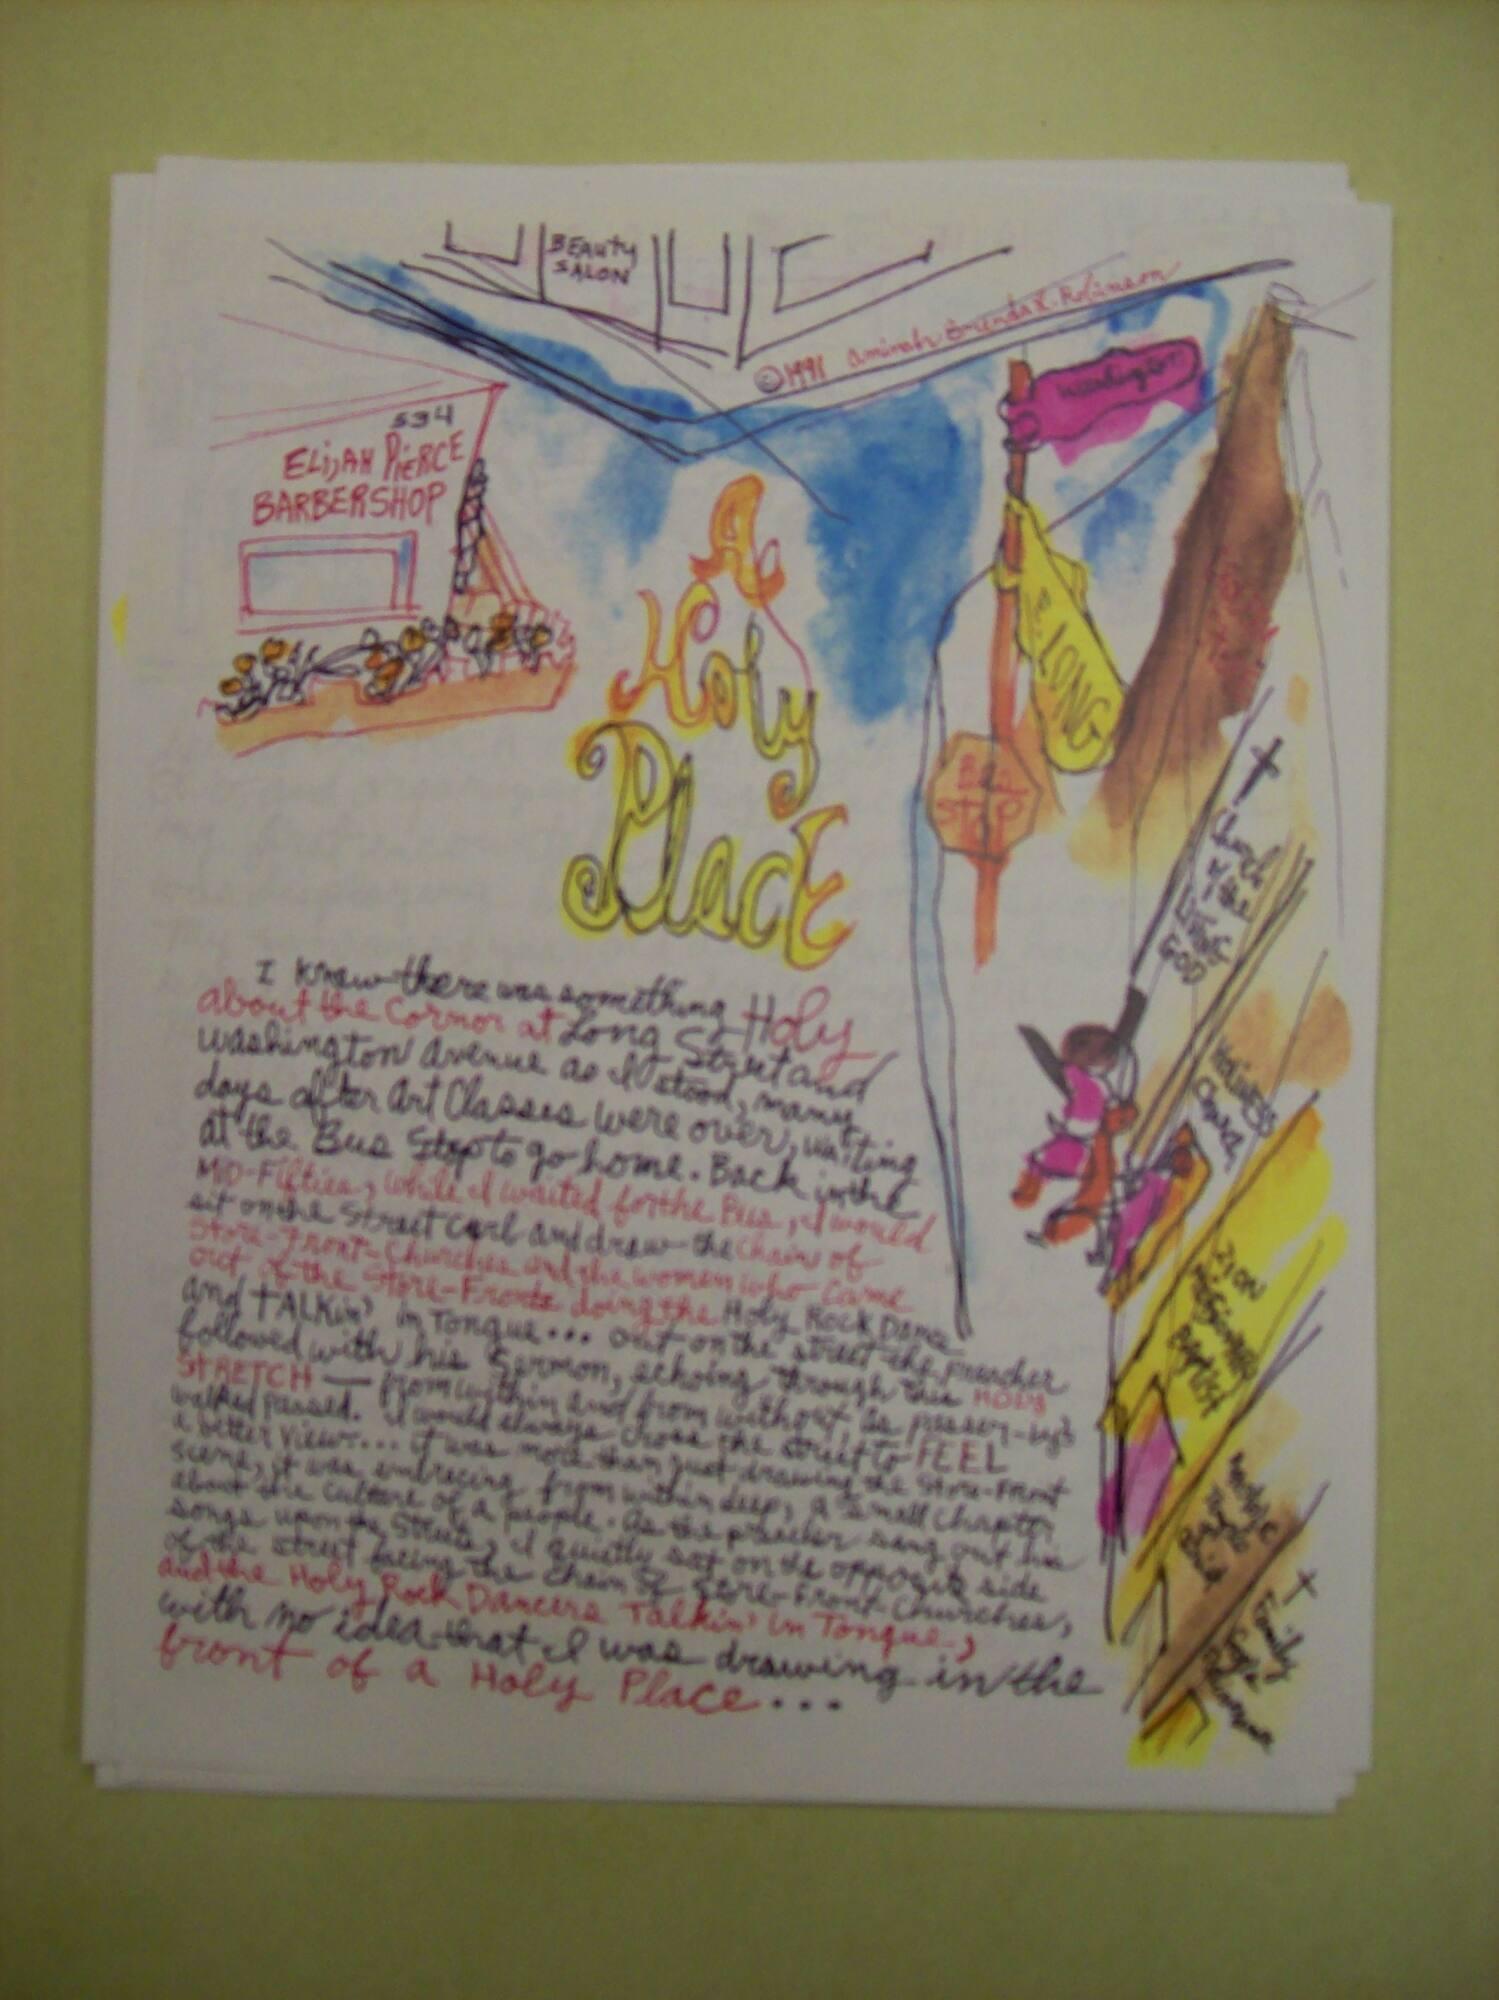 BEAUTY
SALON
©1991 aminah Brenda L. Robinson
Washington
534
ELIJAH PIERCE
BARBERSHOP
E. LONG
A
Holy
PlacE
BUS
STOP
Church
of the
Living
God
Holiness
Church
ZION
Missionary
Baptist
I knew there was something Holy
about the Corner at Long Street and
Washington Avenue as I stood, many
days after Art Classes were over, waiting
at the Bus Stop to go home. Back in the
MID-Fifties, while I waited for the Bus, I would
sit on the Street curb and draw the Chain of
Store-Front-Churches and the women who came
out of the Store-Fronts doing the Holy Rock Dance
and TALKin' in Tongue... out on the street the preacher
followed with his Sermon, echoing through this HOLY
STRETCH — from within and from without, as passer-by's
walked passed. I would always cross the street to FEEL
a better view... it was more than just drawing the Store-Front
scene, it was embracing from within deep, a small chapter
about the culture of a people. As the preacher sang out his
songs upon the Streets, I quietly sat on the opposite side
of the street facing the Chain of Store-Front-Churches,
and the Holy Rock Dancers Talkin' in Tongue,
with no idea that I was drawing in the
front of a Holy Place...